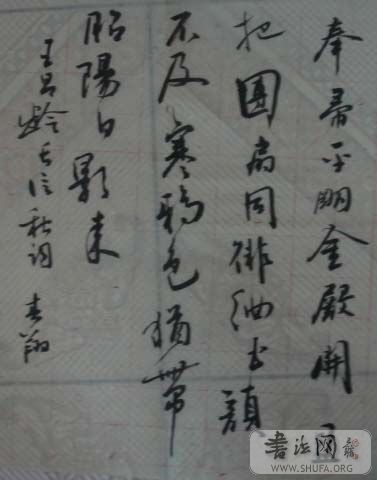 奉帚平明金殿開且
把團扇同徘徊玉顏
不及寒鴉色猶帶
昭陽日影來
王昌齡長信秋詞 翔
書法网
WWW.SHUFA.ORG